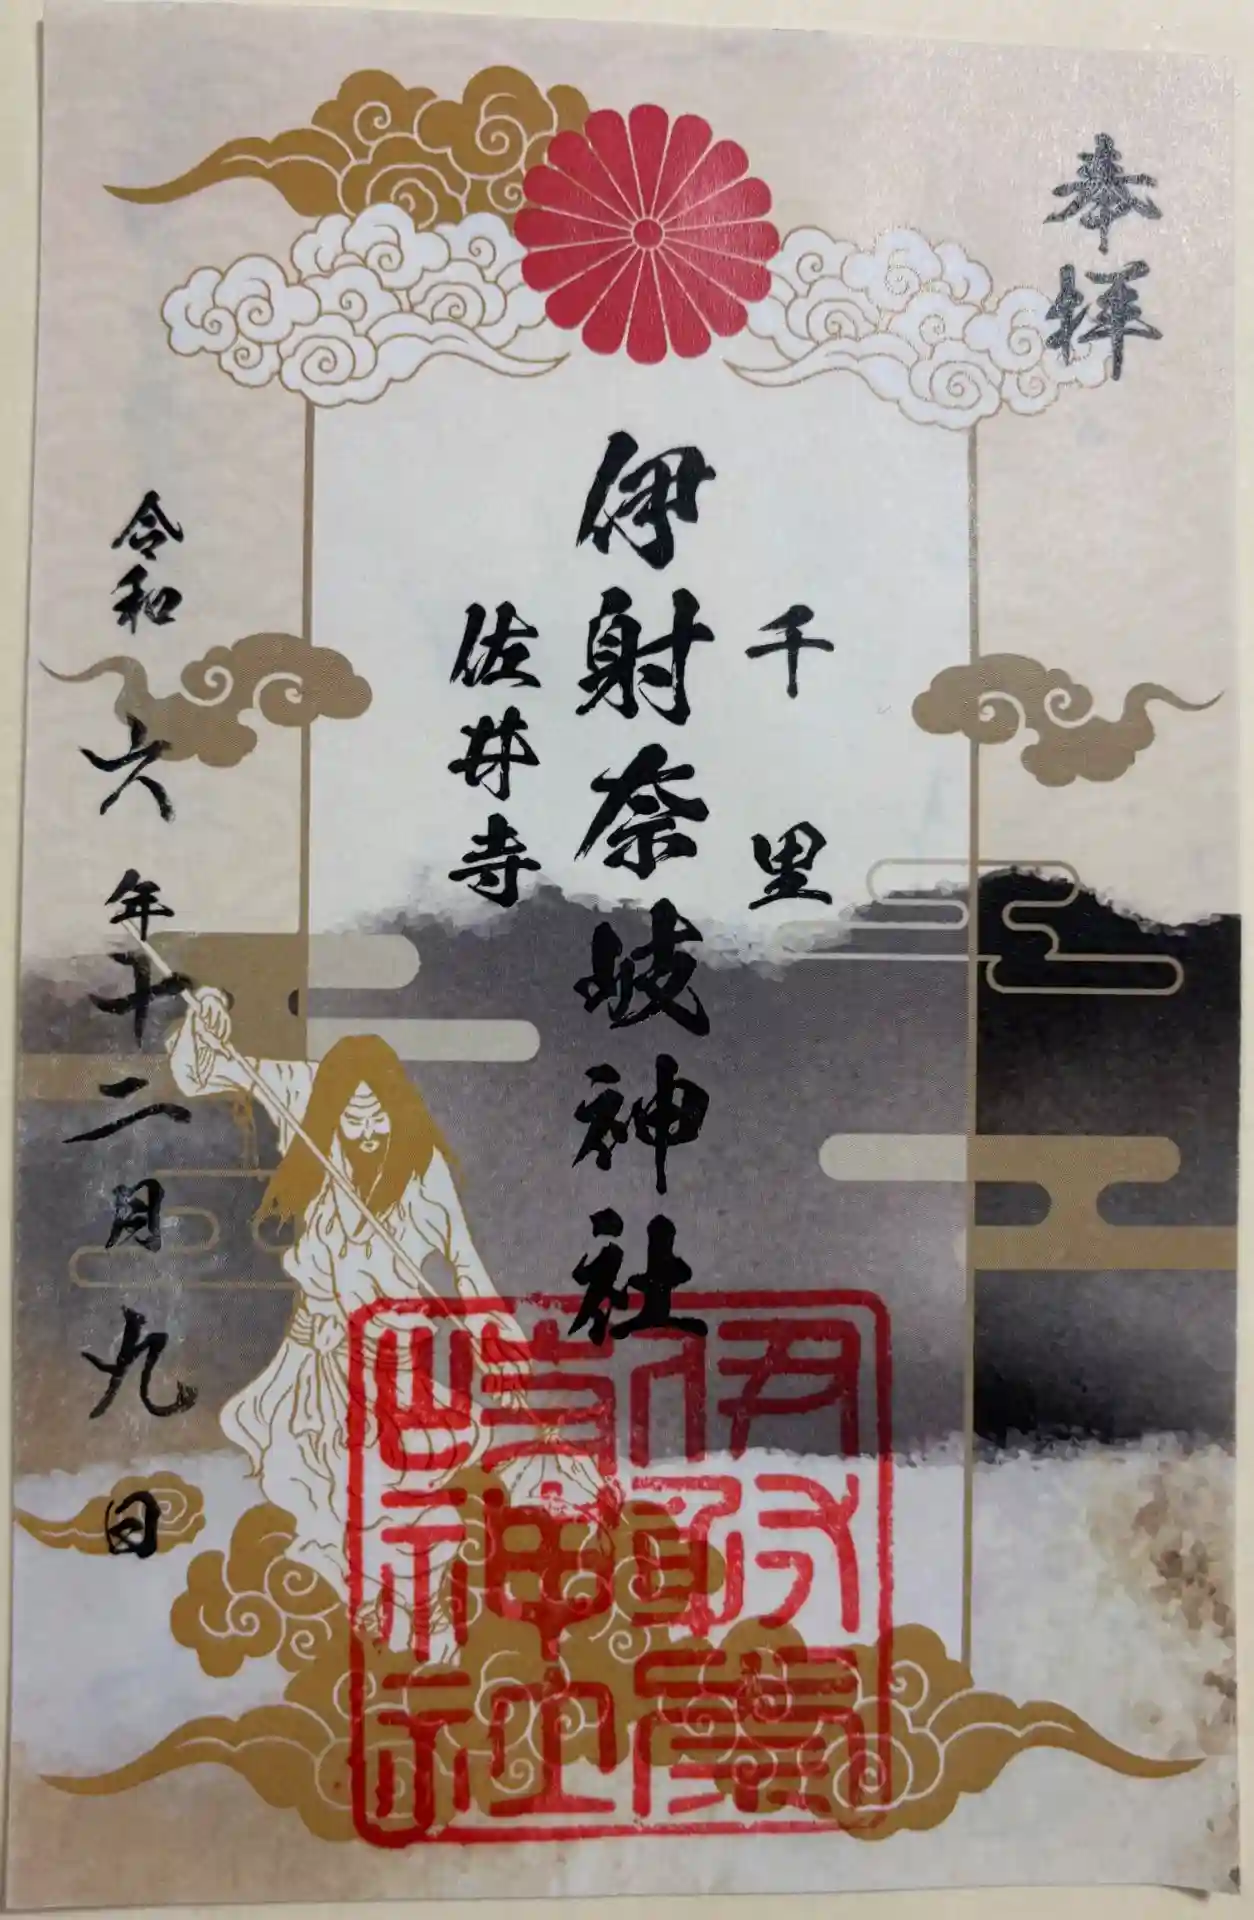 奉拝
千里
伊射奈岐神社
佐井寺
令和六年十二月九日
伊射奈
岐神社